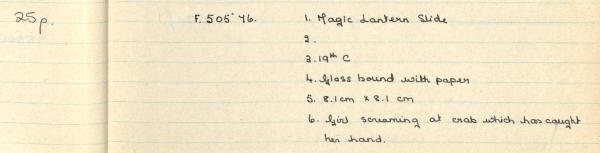 25p.
F. 505'76.
1. Magic Lantern Slide
2.
3. 19th C
4. Glass bound with paper
5. 8.1cm x 8.1 cm
6. Girl screaming at crab which has caught
her hand.